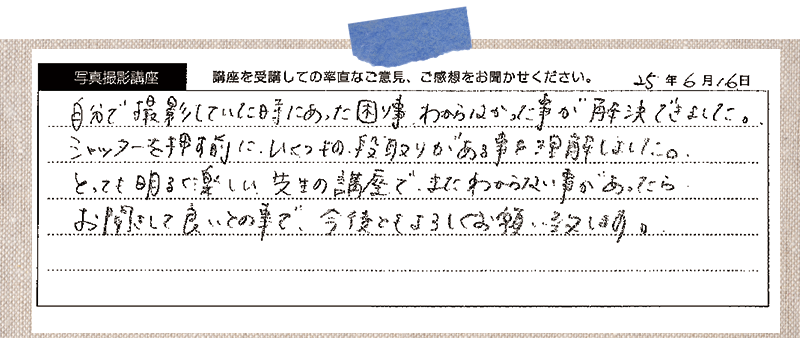 写真撮影講座 講座を受講しての率直なご意見、ご感想をお聞かせください。 25年6月16日
自分で撮影していた時にあった困り事、わからなかった事が解決できました。
シャッターを押す前に、いくつもの段取りがある事を理解しました。
とっても明るく楽しい先生の講座で、またわからない事があったら
お聞きして良いとの事で、今後ともよろしくお願い致します。